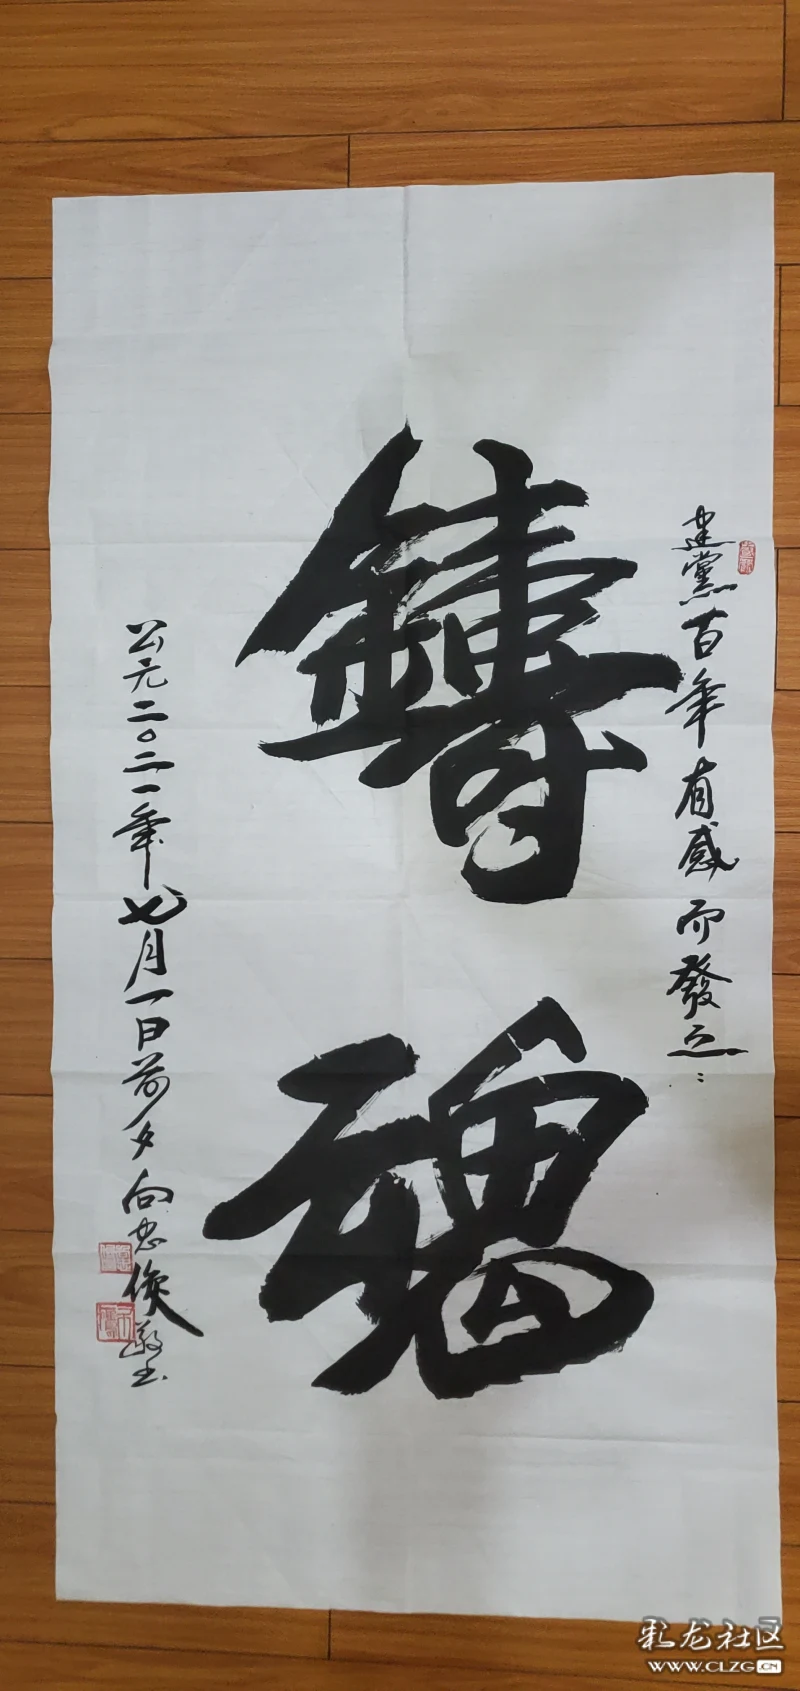 建黨百年有感而發之:
鑄魂
公元二〇二一年七月一日前夕向忠俊敬书
彩龙社区
WWW.CLZG.CN